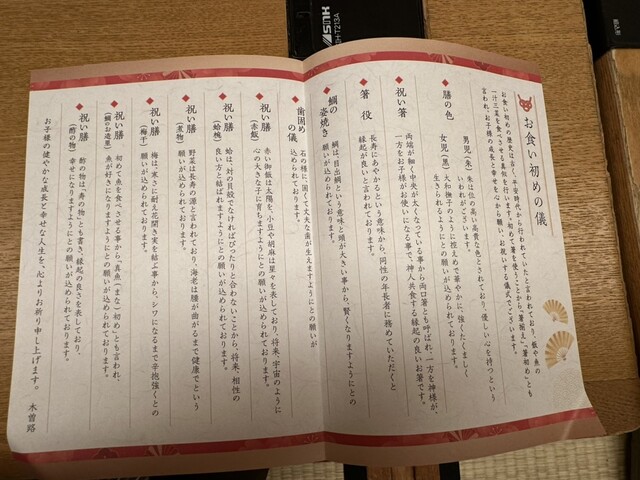 お食い初めの儀
お食い初めの歴史は古く平安時代から行われていたと言われており、飯や魚の
一汁三菜を食べさせる真似を行います。初めて箸を使うことから「箸揃え」「箸初め」とも
言われ、お子様の成長と幸せを心から願い、お祝いする儀式でございます。
◆膳の色
男児(朱) 朱は位の高い高貴な色とされており、優しい心を持つという
いわれがございます。
女児(黒) 大和撫子のように控えめで華やかに、強くたくましく
生きられるようにとの願いが込められております。
◆祝い箸
両端が細く中央が太くなっている事から両口箸とも呼ばれ、一方を神様が、
一方をお子様がお使いになる事で、神人共食する縁起の良いお箸です。
◆箸 役
長寿にあやかるという意味から、同性の年長者に務めていただくと
縁起が良いと言われております。
◆鯛の
姿焼き
鯛は、目出鯛という意味と頭が大きい事から、賢くなりますようにとの
願いが込められております。
◆歯固め
の儀
石の様に、固くて丈夫な歯が生えますようにとの願いが
込められております。
◆祝い膳
(赤飯)
赤い御飯は太陽を、小豆や胡麻は星々を表しており、将来、宇宙のように
心の大きな子に育ちますようにとの願いが込められております。
◆祝い膳
(蛤椀)
蛤は、対の貝殻でなければぴったりと合わないことから、将来、相性の
良い方と結ばれますようにとの願いが込められております。
◆祝い膳
(煮物)
野菜は長寿の源と言われており、海老は腰が曲がるまで健康でという
願いが込められております。
◆祝い膳
(梅干)
梅は、寒さに耐え花開き実を結ぶ事から、シワになるまで辛抱強くとの
願いが込められております。
◆祝い膳
(鯛のお造里)
初めて魚を食べさせる事から、真魚(まな)初め」とも言われ、
魚が好きになりますようにとの願いが込められております。
◆祝い膳
(酢の物)
酢の物は、「寿の物」とも書き、縁起の良さを表しており、
幸せになりますようにとの願いが込められております。
お子様の健やかな成長と幸せな人生を、心よりお祈り申し上げます。 木曽路